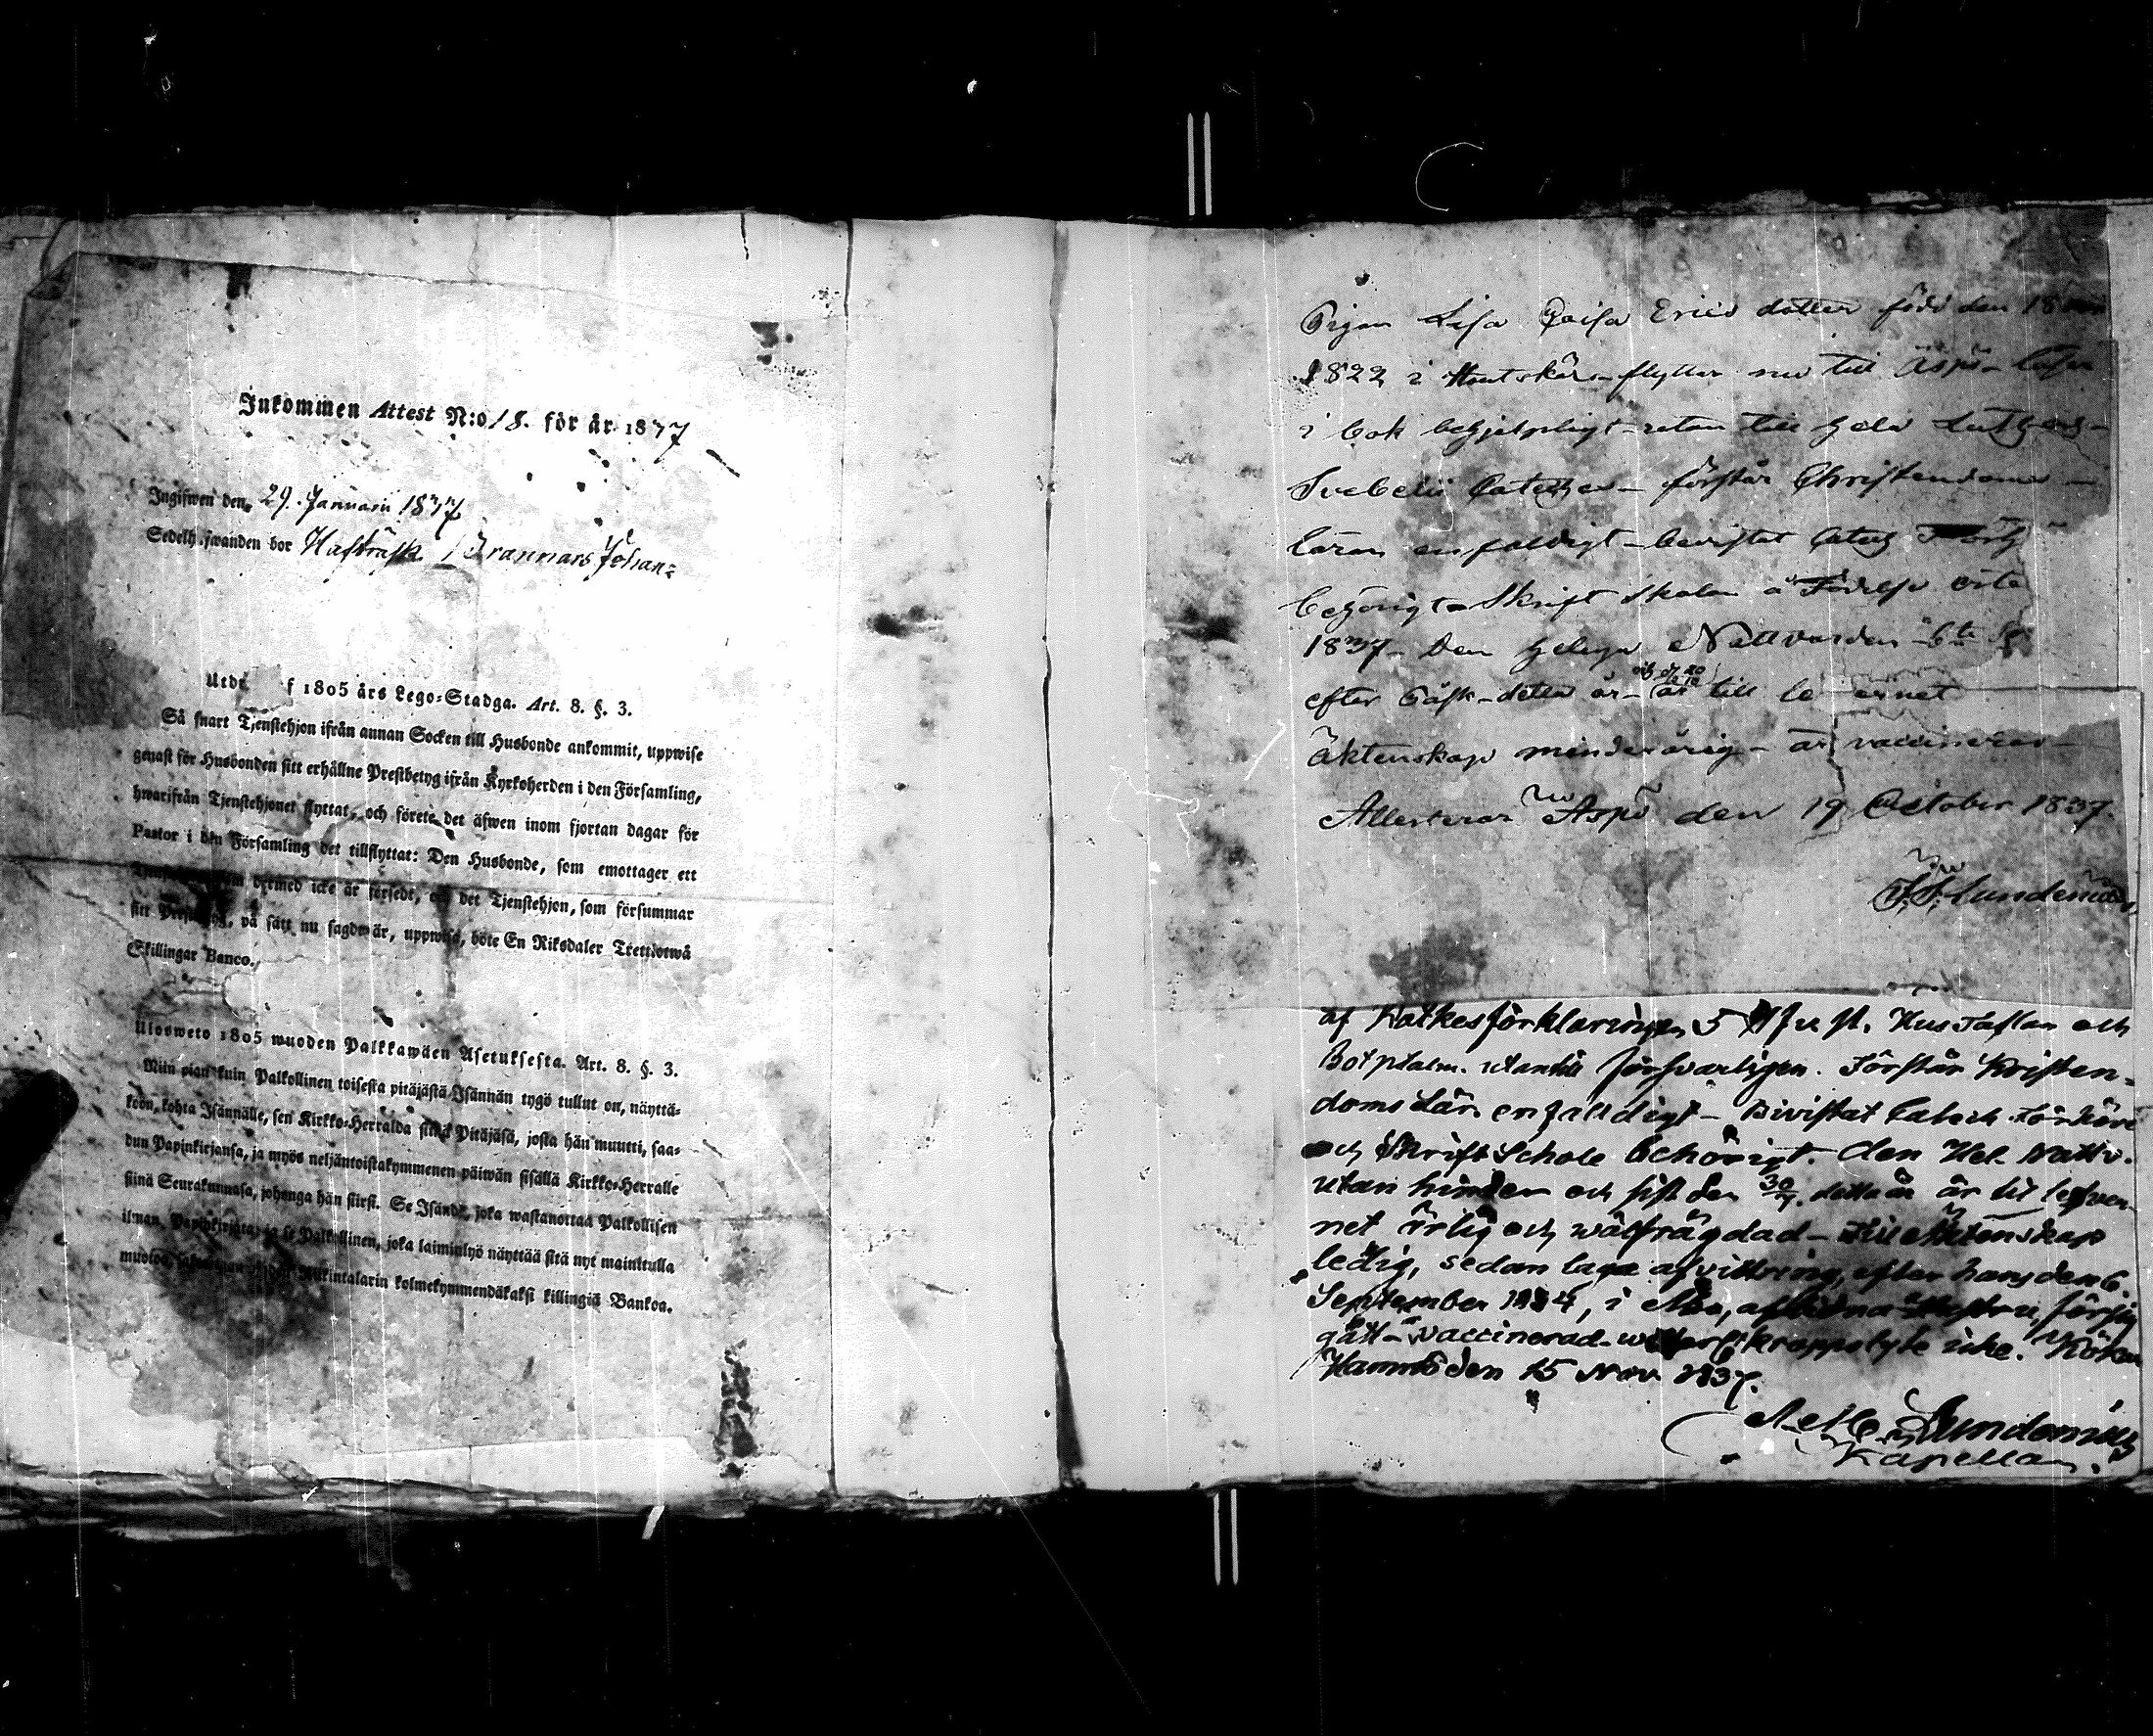 Inkommen Attest N:o 18. för år 1837
Ingifwen den 29. Januarii 1837
Sedelh.fwanden bor Hafträsk Grannars Johan=
Utdr f 1805 års Lego=Stadga. Art. 8. §. 3.
Så snart Tjenstehjon ifrån annan Socken till Husbonde ankommit, uppwise
genast för Husbonden sitt erhållne Prestbetyg ifrån Kyrkoherden i den Församling,
hwarifrån Tjenstehjonet flyttat, och förete det äfwen inom fjortan dagar för
Pastor i den Församling det tillflyttat: Den Husbonde, som emottager ett
dermed icke är försedt, och det Tjenstehjon, som försummar
sitt på sätt nu sagdt är, uppwisa, böte En Riksdaler Trettiotwå
Skillingar Banco.
Ulosweto 1805 wuoden Palkkawäen Asetuksesta. Art. 8. §. 3.
Niin pian kuin Palkollinen toisesta pitäjästä Isännän tygö tullut on, näyttä=
köön, kohta Isännälle, sen Kirkko=Herralda siinä Pitäjäsä, josta hän muutti, saa=
dun Papinkirjansa, ja myös neljäntoistakymmenen päiwän sisällä Kirkko=Herralle
siinä Seurakunnasa, johonga hän siirsi. Se Isändä, joka wastanottaa Palkollisen
ilman Papinkirjata, ja se Palkollinen, joka laiminlyö näyttää sitä nyt mainitulla
muotoa, kolmekymmendäkaksi killingiä Bankoa.
Pigan Lisa Caisa Erics dotter född den 18
1822 i Houtskär flyttar nu till Aspö - läser
i bok behjelpligt - utan till hela Luthers -
Svebelii Cateches - förstår Christendoms -
läran enfaldigt - bevistat Catech Förh
behörigt Skrift skolan
1837 - Den heliga Nattvarden 6te
efter Påsk - detta år - är till le ernet
Äktenskap minderårig - är vaccinerad -
Attesterar Aspö den 19 October 1837.
Lundemar
af Kätkesförklaringen 5 Hust. Hustaflan och
Botpsalm. utantill försvarligen. Förstår Kristen-
doms Lär. enfalldigt - Bivistat Catech. Förhör
och Skrift Schole behörigt. den Hel. Nattv.
utan hinder och sist den 30/7. detta år är til lefver-
net ärlig och wälfrägdad - til Äktenskap
ledig, sedan laga afvittring, efter hans den 6.
September 1834, i aflidna Hustru, försig
gått - vaccinerad - kroppslyte icke. Kökar
Hamnö den 15 Nov. 1837.
Lundemar
Kapellan.